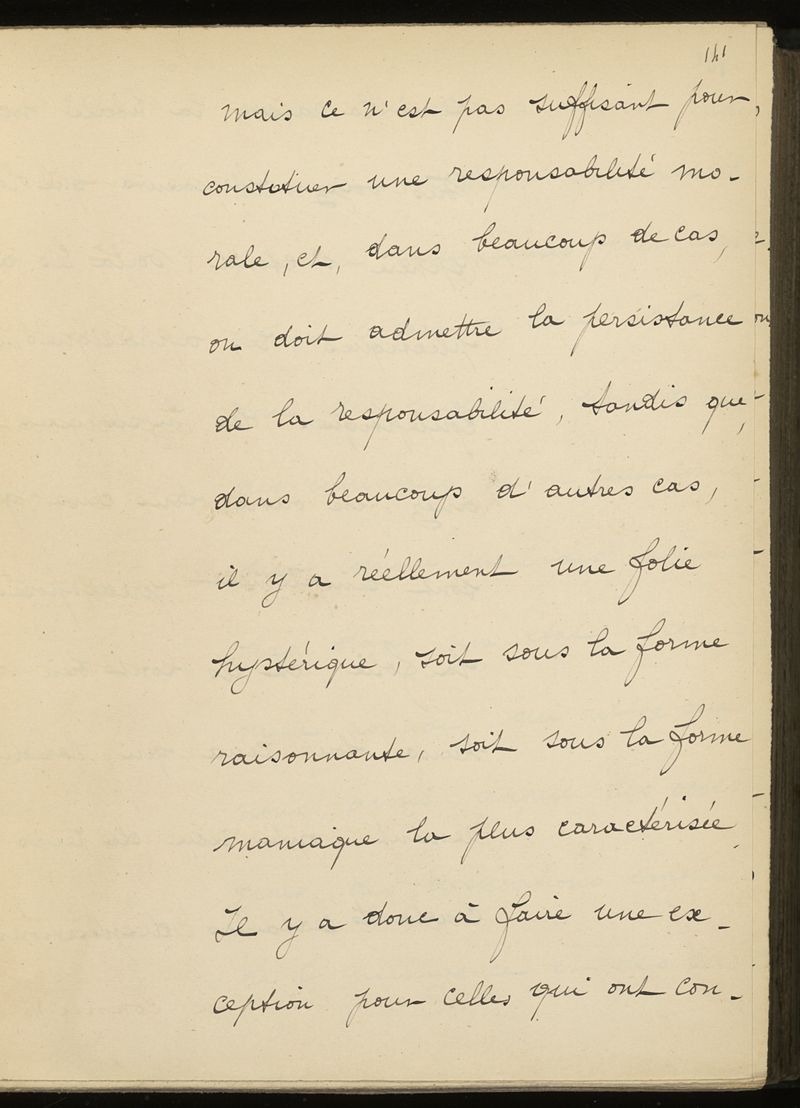 141
mais ce n'est pas suffisant pour
constituer une responsabilité mo-
rale, et, dans beaucoup de cas,
on doit admettre la persistance
de la responsabilité, tandis que
dans beaucoup d'autres cas,
il y a réellement une folie
hystérique, soit sous la forme
raisonnante, soit sous la forme
maniaque la plus caractérisée
Il y a donc à faire une ex-
ception pour celles qui ont con-